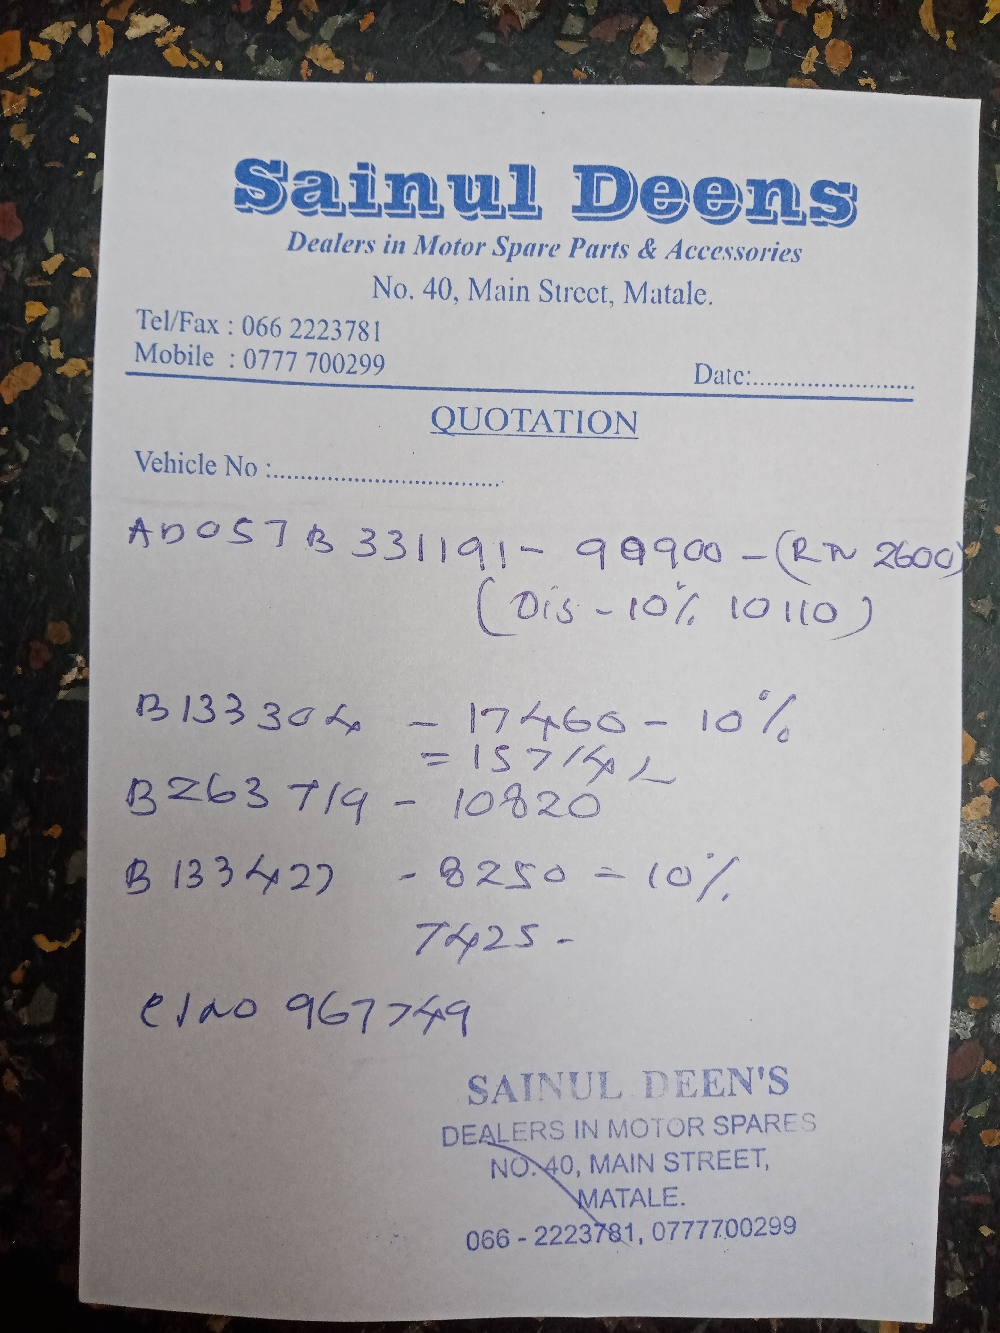 Sainul Deens
Dealers in Motor Spare Parts & Accessories
No. 40, Main Street, Matale.
Tel/Fax : 066 2223781
Mobile : 0777 700299
Date:........................
QUOTATION
Vehicle No :..................................
AD057B331191 - 99900 - (RN 2600)
(Dis - 10% 10110)
B133304 - 17460 - 10%
= 15714
B263719 - 10820
B133427 - 8250 = 10%
7425 -
967749
SAINUL DEEN'S
DEALERS IN MOTOR SPARES
NO. 40, MAIN STREET,
MATALE.
066 - 2223781, 0777700299